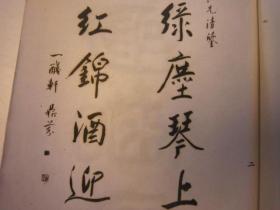 先清鑒
綠塵琴上
紅錦酒迎
一醆軒
二